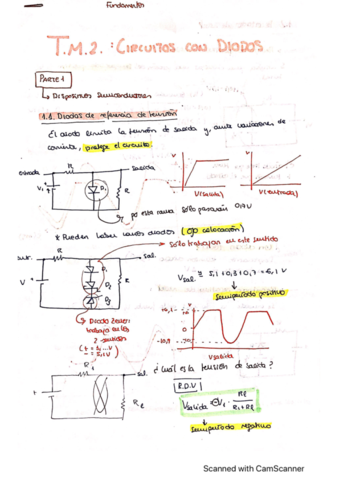 Fundamentos
T.M.2.: CIRCUITOS CON DIODOS
PARTE 1
↳ Dispositivos Semiconductores
1.1. Diodos de referencia de tensión
El diodo limita la tensión de salida y, ante variaciones de
corriente, protege el circuito.
entrada
R
Salida
V
V
V(salida)
V(entrada)
por esta rama solo pasarán 0,7V
* Pueden haber varios diodos (ojo colocación)
Solo trabajan en este sentido
R
Sal.
V
D1
D2
D3
R
Semiperíodo positivo
Diodo Zener
trabaja en los
2 sentidos
V salida
R1
sal.
¿Cuál es la tensión de salida?
R.D.V
Semiperíodo negativo
Scanned with CamScanner